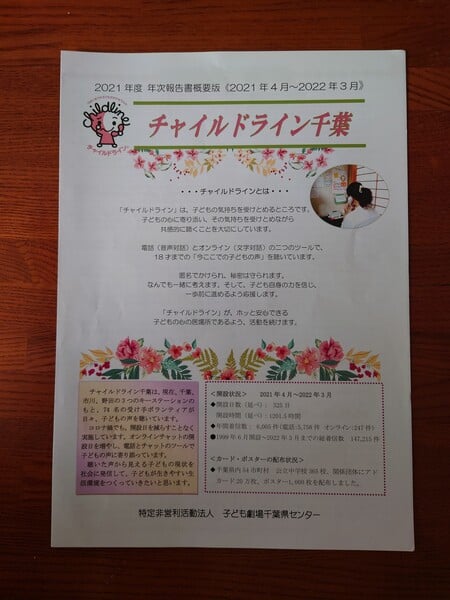 2021年度 年次報告書概要版《2021年4月～2022年3月》
childline
チャイルドライン
チャイルドライン千葉
・・・チャイルドラインとは・・・
「チャイルドライン」は、子どもの気持ちを受けとめるところです。
子どもの心に寄り添い、その気持ちを受けとめながら
共感的に聴くことを大切にしています。
電話（音声対話）とオンライン（文字対話）の二つのツールで、
18才までの「今ここでの子どもの声」を聴いています。
匿名でかけられ、秘密は守られます。
なんでも一緒に考えます。そして、子ども自身の力を信じ、
一歩前に進めるよう応援します。
「チャイルドライン」が、ホッと安心できる
子どもの心の居場所であるよう、活動を続けます。
チャイルドライン千葉は、現在、千葉、
市川、野田の3つのキーステーションの
もと、74名の受け手ボランティアが
日々、子どもの声を聴いています。
コロナ禍でも、開設日を減らすことなく
実施しています。オンラインチャットの開
設日を増やし、電話とチャットのツールで
子どもの声に寄り添っています。
聴いた声から見える子どもの現状を
社会に発信して、子どもが生きやすい生
活環境をつくっていきたいと思います。
＜開設状況＞ 2021年4月～2022年3月
●開設日数（延べ）： 325日
開設時間（延べ）：1201.5時間
●年間着信数：6,005件(電話:5,758件 オンライン:247件)
●1999年6月開設～2022年3月までの総着信数 147,215件
＜カード・ポスターの配布状況＞
●千葉県内54市町村 公立中学校365校、関係団体にアド
カード20万枚、ポスター1,000枚を配布しました。
特定非営利活動法人 子ども劇場千葉県センター